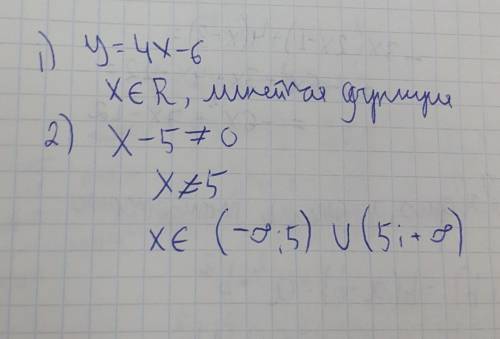 1) y = 4x - 6
x ∈ R, линейная функция
2) x - 5 ≠ 0
x ≠ 5
x ∈ (-∞; 5) ∪ (5; +∞)